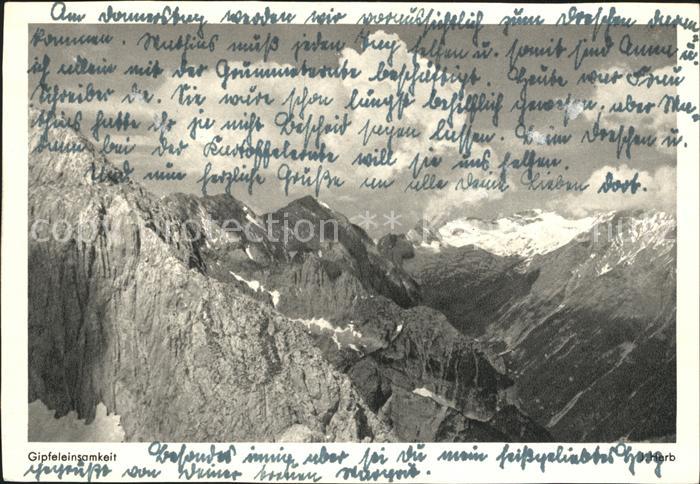 Am Donnerstag werden wir voraussichtlich zum Dreschen dran
kommen. Mathias muß jeden Tag helfen u. somit sind Anna u.
ich allein mit der Grummeternte beschäftigt. Heute war Frau
Schreiber da. Sie wäre schon längst behilflich gewesen, aber Ma-
thias hatte ihr ja nicht Bescheid sagen lassen. Beim Dreschen u.
dann bei der Kartoffelernte will sie uns helfen.
Und nun herzliche Grüße an alle Deine Lieben dort.
copyright protection ** copyright
Gipfeleinsamkeit
Besonders innig aber sei Du mein heißgeliebtes
gegrüßt von Deiner treuen Margret.